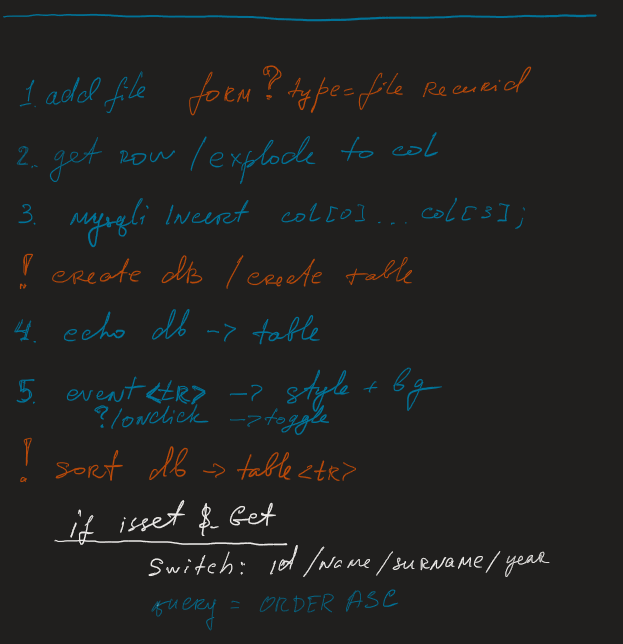 1. add file form ? type=file recurid
2. get row / explode to col
3. mysqli Incert col[0]...col[3];
! create db / create table
4. echo db -> table
5. event <tR> -> style + bg
?/onclick -> toggle
! sort db -> table <tR>
if isset $_Get
Switch: id / name / surname / year
query = ORDER ASC